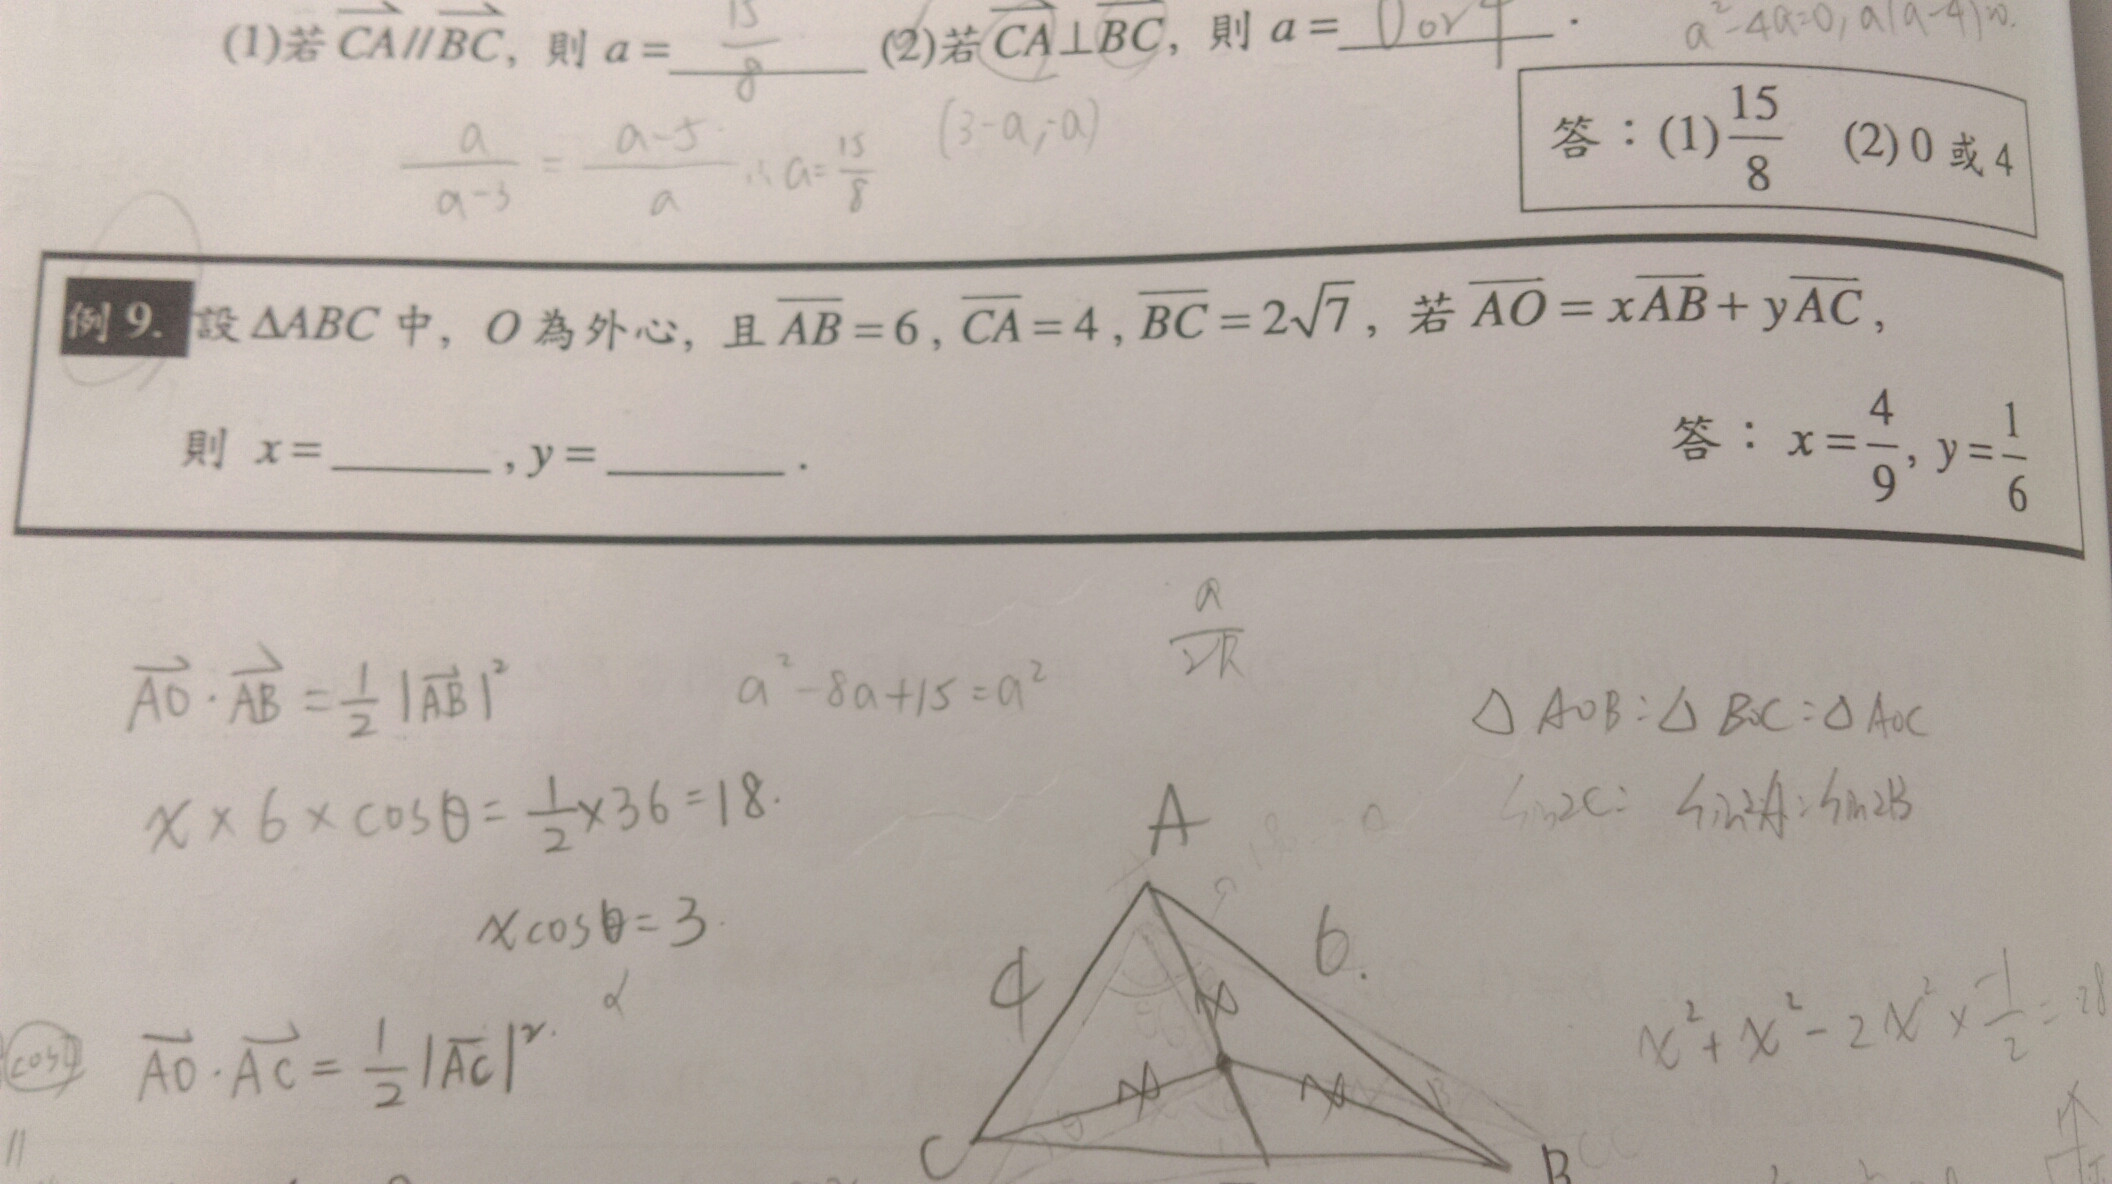 (1)若 CA//BC, 則 a= 15/8 (2)若 CA⊥BC, 則 a= 0 or 4 .
a²-4a=0, a(a-4)=0.
a/(a-3) = (a-5)/a ∴ a=15/8
(3-a,-a)
答：(1) 15/8 (2) 0 或 4
例 9. 設 ΔABC 中, O 為外心, 且 AB=6, CA=4, BC=2√7, 若 AO=xAB+yAC,
則 x=______, y=______.
答：x=4/9, y=1/6
AO·AB=1/2|AB|²
a²-8a+15=a²
a/2R
△AOB:△BOC:△AOC
sin2C: sin2A:sin2B
x×6×cosθ=1/2×36=18.
xcosθ=3.
α
AO·AC=1/2|AC|².
cosθ
A
4
6.
x
x
x
C
B
x²+x²-2x²×-1/2=28